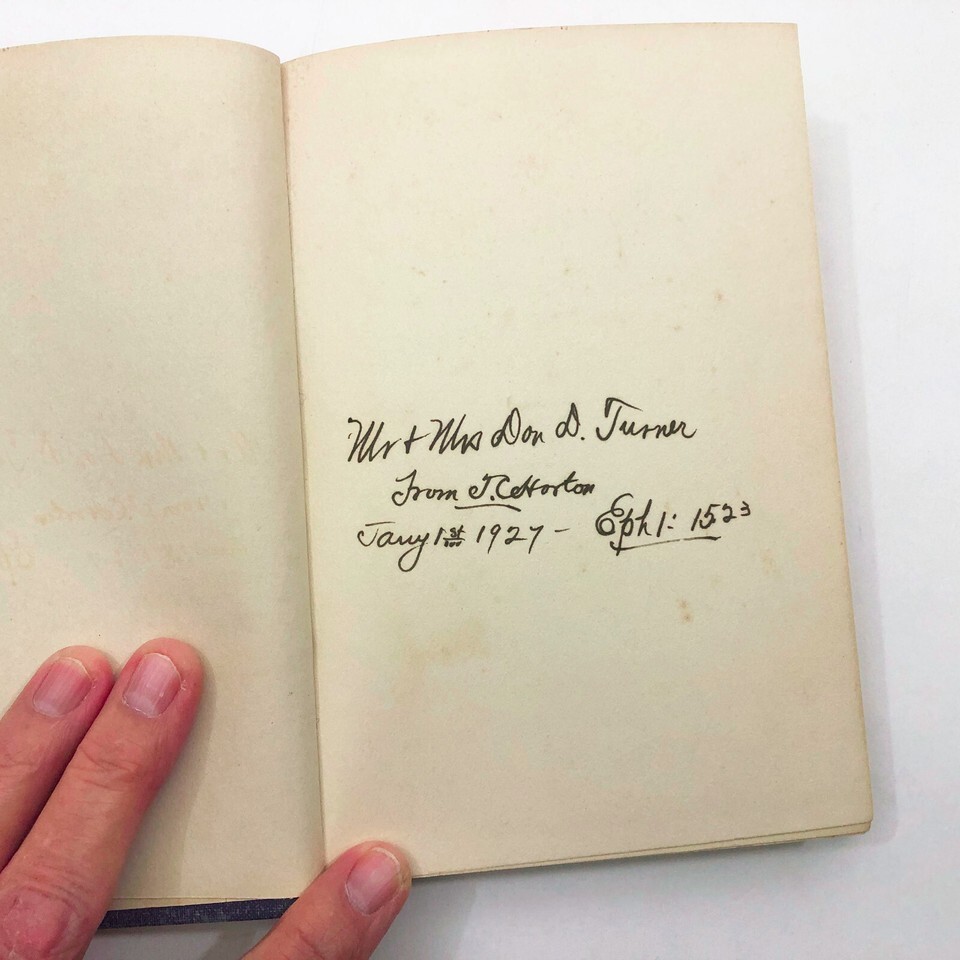 Mr + Mrs Don D. Turner
From T.C. Horton
Jany 1st 1927 - Eph 1: 1523